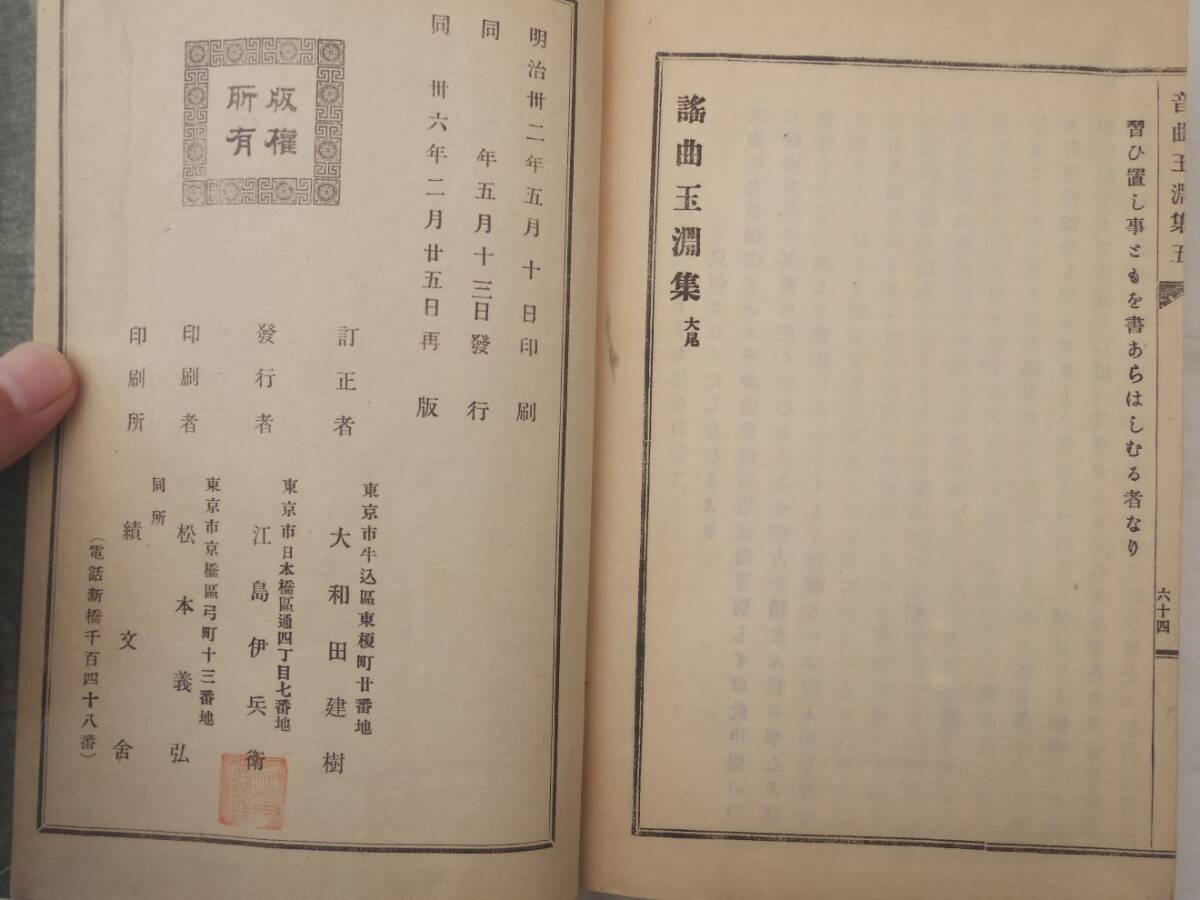 音曲玉淵集五
六十四
習ひ置し事ともを書あらはしむる者なり
謠曲玉淵集 大尾
明治卅二年五月十日印刷
同年五月十三日發行
同卅六年二月廿五日再版
版權
所有
訂正者
東京市牛込區東榎町廿番地
大和田建樹
發行者
東京市日本橋區通四丁目七番地
江島伊兵衛
印刷者
東京市京橋區弓町十三番地
松本義弘
印刷所
同所
績文舍
(電話新橋千百四十八番)